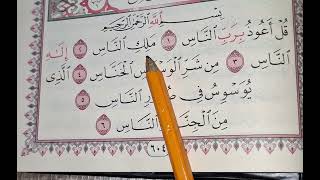 بِسْمِ اللَّهِ الرَّحْمَٰنِ الرَّحِيمِ
قُلْ أَعُوذُ بِرَبِّ النَّاسِ ١ مَلِكِ النَّاسِ ٢ إِلَٰهِ
النَّاسِ ٣ مِن شَرِّ الْوَسْوَاسِ الْخَنَّاسِ ٤ الَّذِي
يُوَسْوِسُ فِي صُدُورِ النَّاسِ ٥
مِنَ الْجِنَّةِ وَالنَّاسِ ٦
٦٠٤